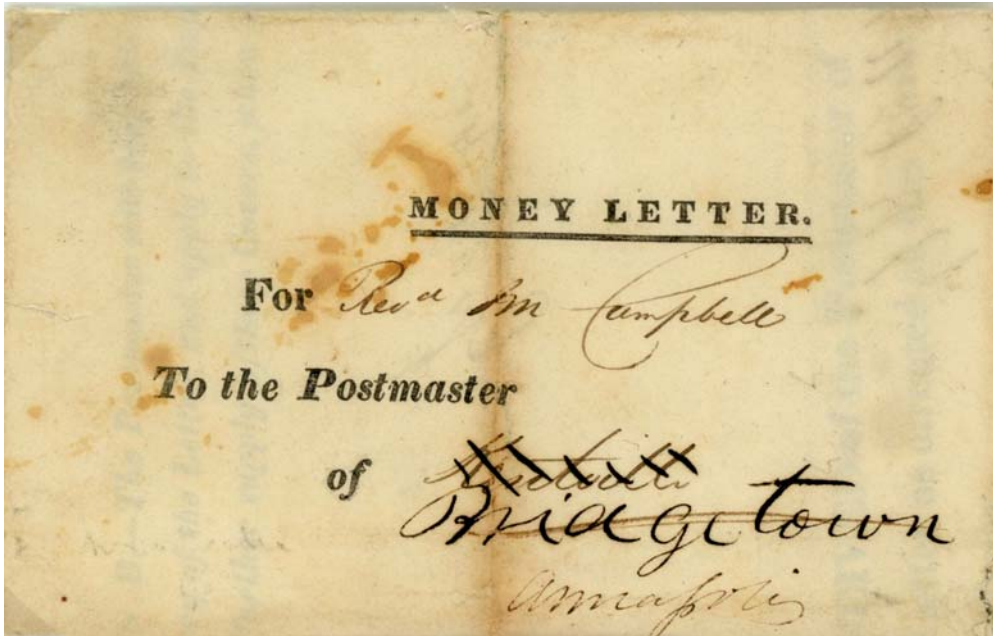 MONEY LETTER.
For Revd Campbell
To the Postmaster
of Kentville
Bridgetown
Annapolis